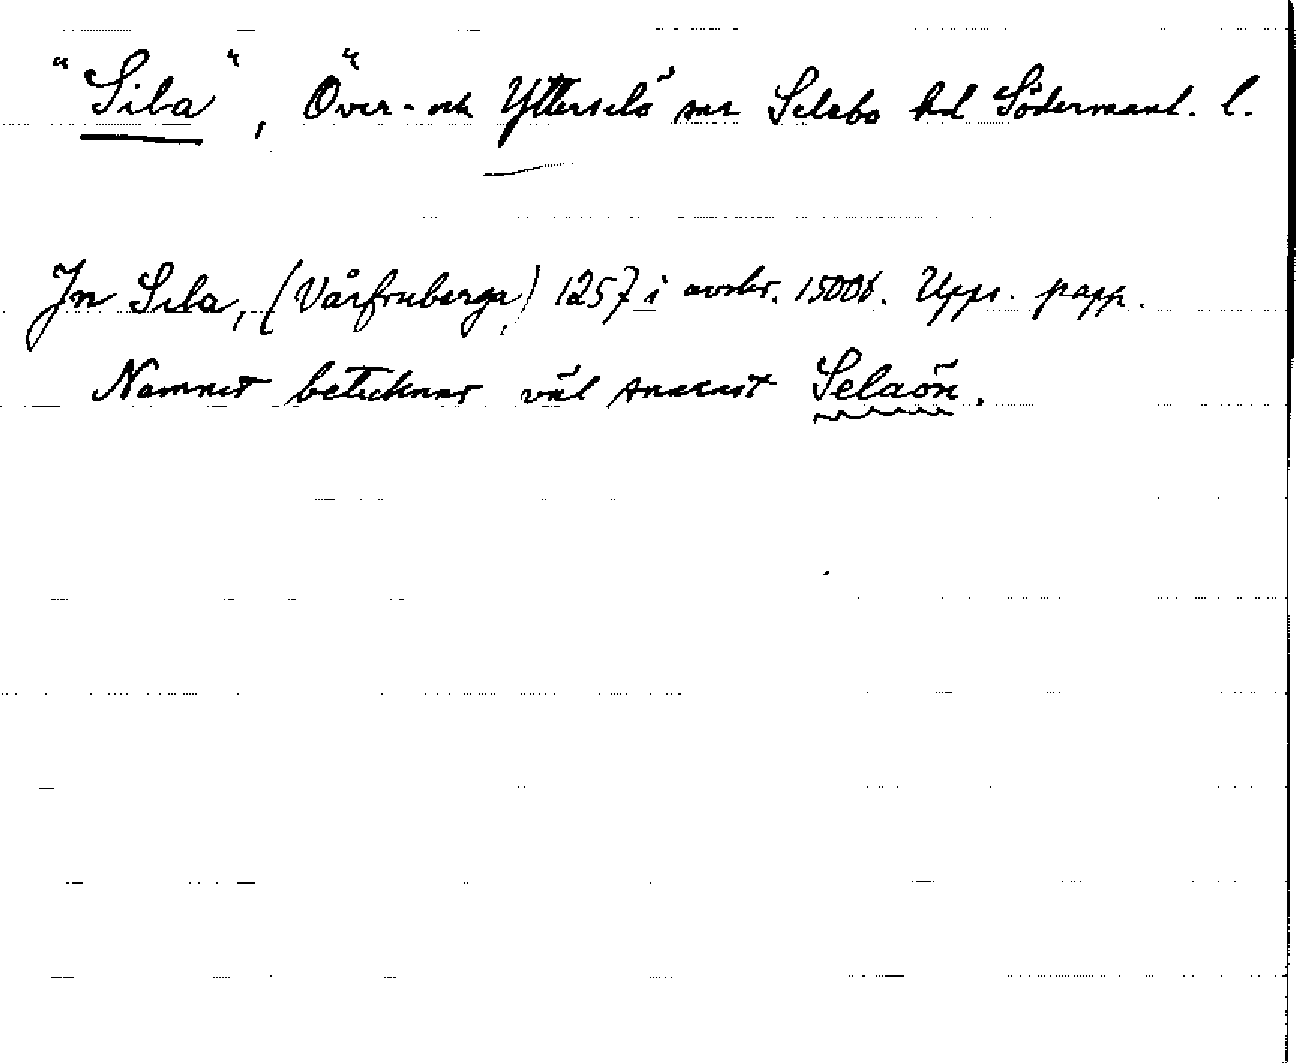 "Sila", Över- och Ytterselö snr Selebo hd Södermanl. l.
Jn Sila, (Vårfruberga) 1257 i avskr. 1500t. Upps. papp.
Namnet betecknar väl snarast Selaön.